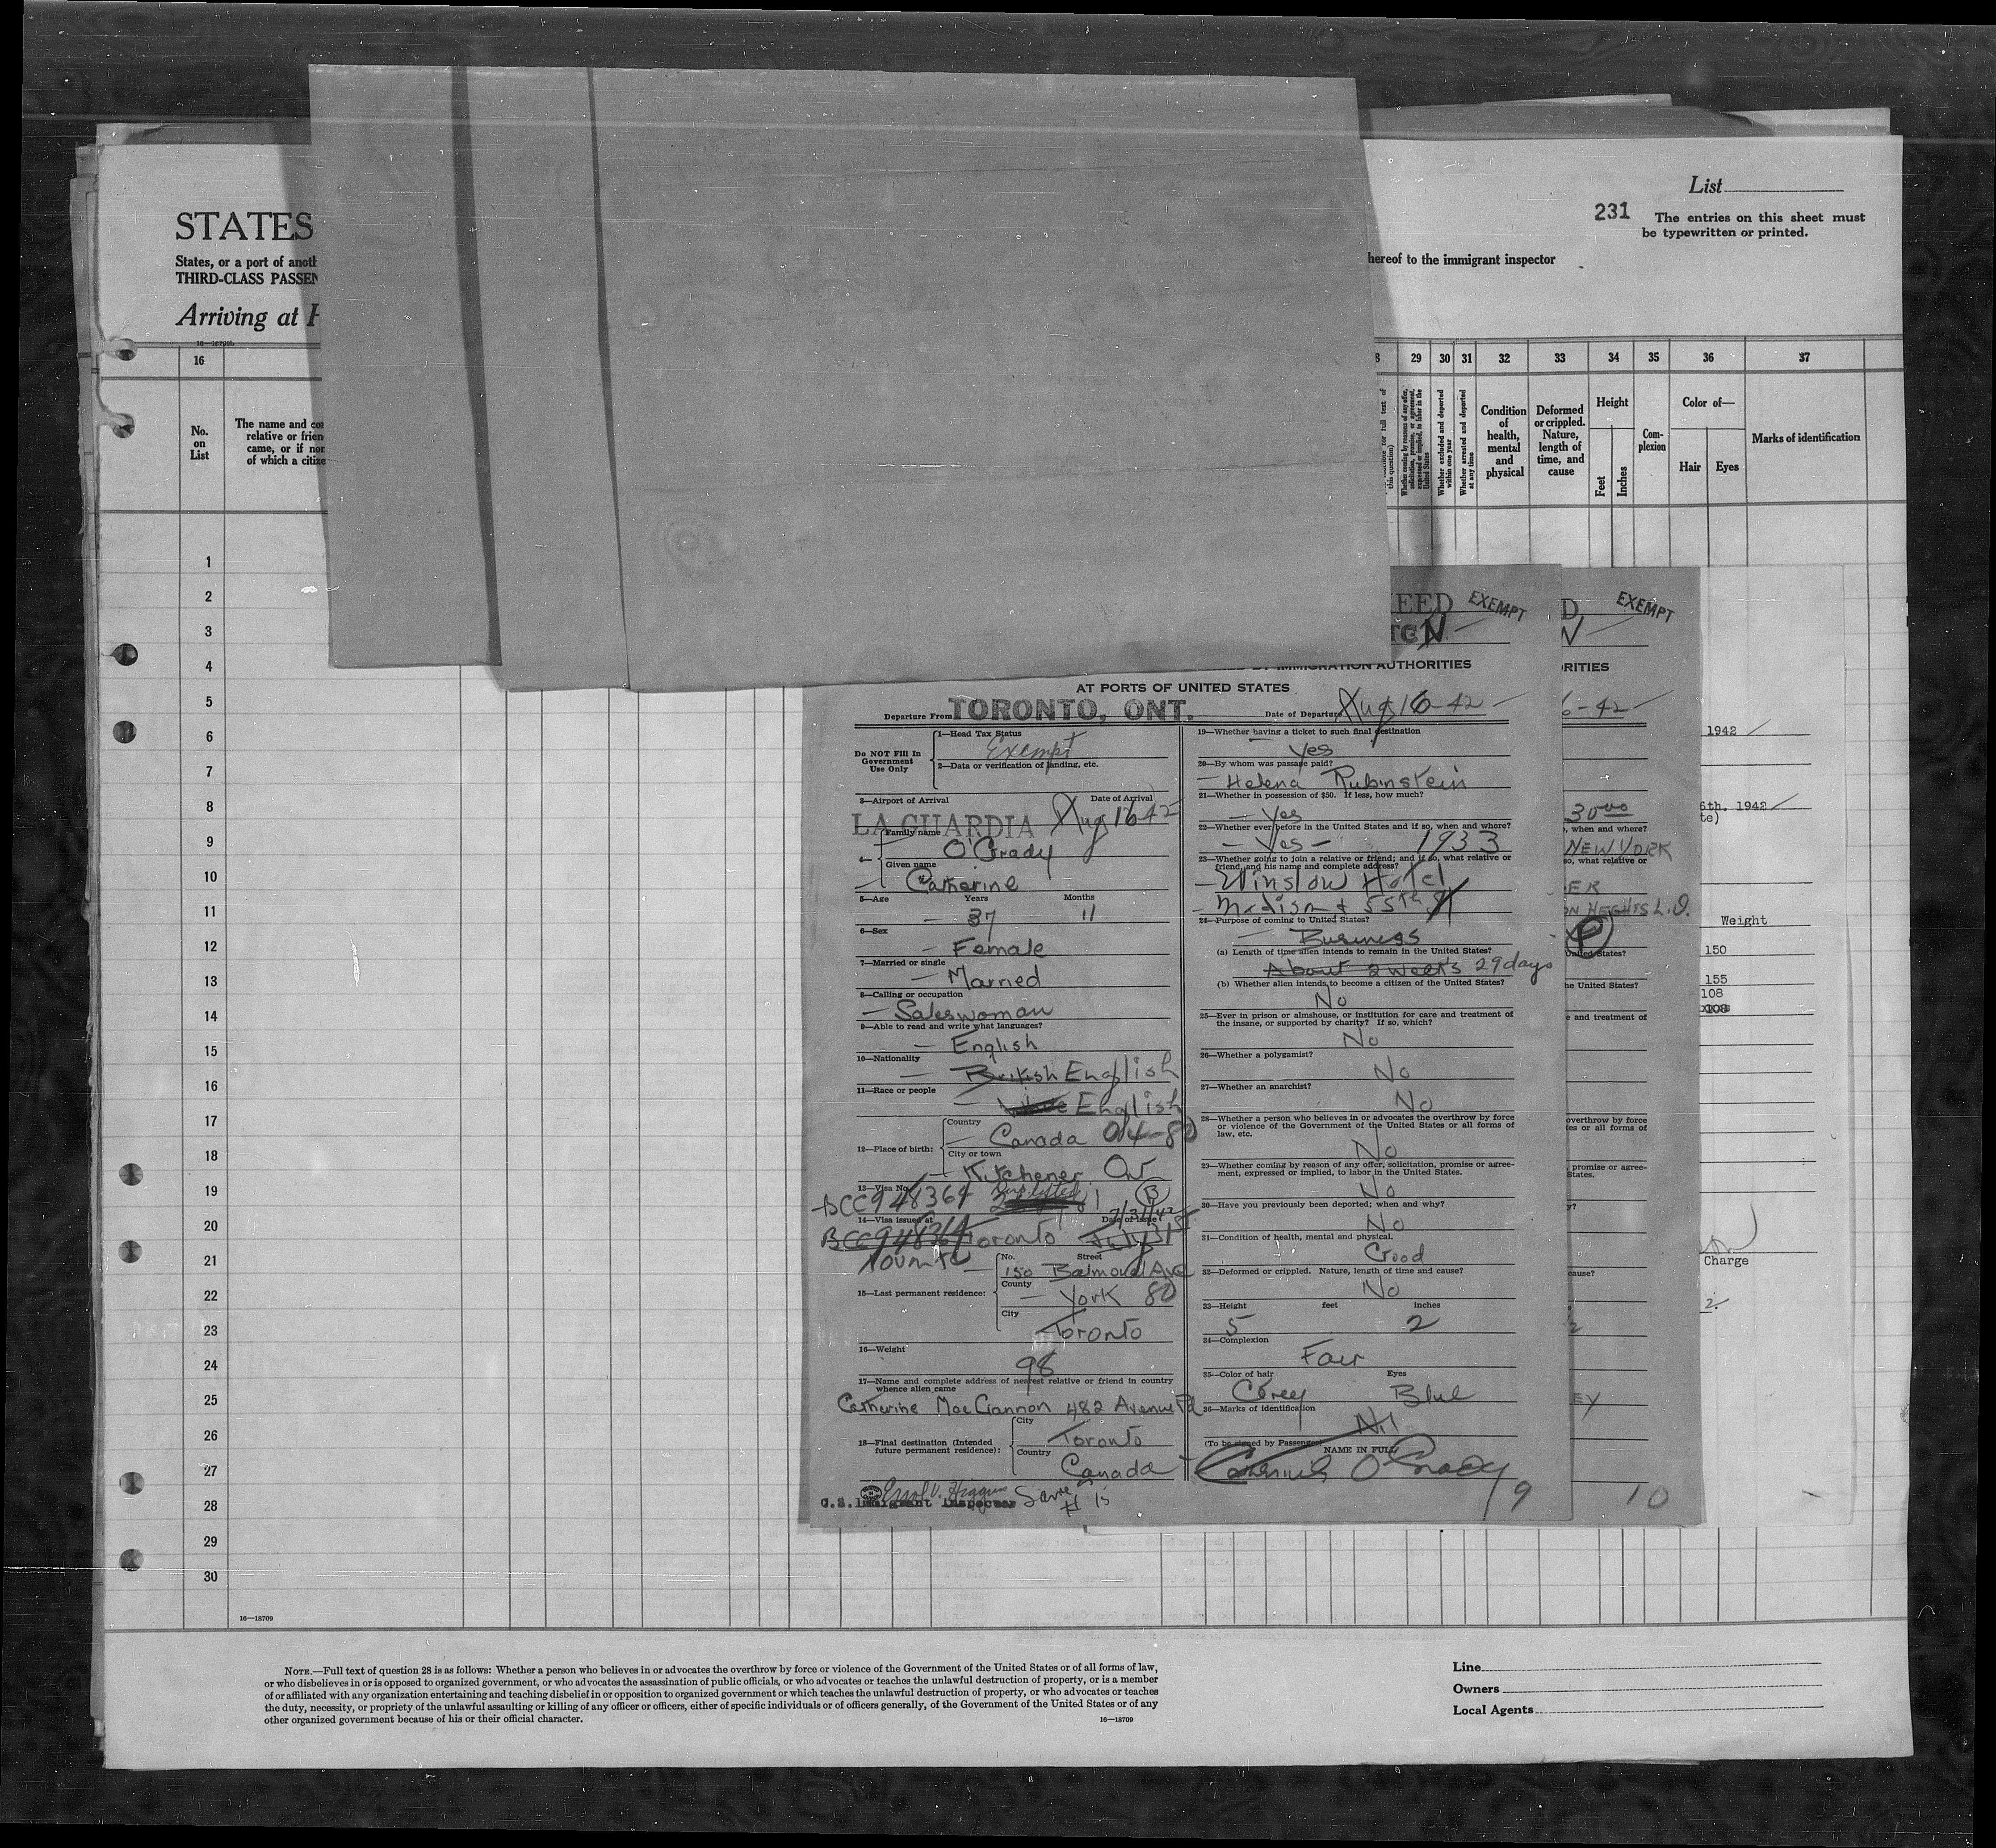 List
231 The entries on this sheet must
be typewritten or printed.
STATES
States, or a port of anoth
THIRD-CLASS PASSEN
hereof to the immigrant inspector
Arriving at
16—18709
16 29 30 31 32 33 34 35 36 37
No.
on
List
The name and co
relative or frien
came, or if non
of which a citize
this question)
Whether coming by reasons of any offer, solicitation, promise, or agreement, expressed or implied, to labor in the United States
Whether excluded and deported within one year
Whether arrested and deported at any time
Condition
of
health,
mental
and
physical
Deformed
or crippled.
Nature,
length of
time, and
cause
Height
Feet
Inches
Com-
plexion
Color of—
Hair Eyes
Marks of identification
1
2
3
4
5
6
7
8
9
10
11
12
13
14
15
16
17
18
19
20
21
22
23
24
25
26
27
28
29
30
16—18709
EXEMPT
IMMIGRATION AUTHORITIES
AT PORTS OF UNITED STATES
Departure From TORONTO, ONT. Date of Departure Aug 16-42
Do NOT Fill In
Government
Use Only
1—Head Tax Status
Exempt
2—Data or verification of landing, etc.
3—Airport of Arrival Date of Arrival
LA GUARDIA Aug 16 42
4— Family name
O'Grady
Given name
Catherine
5—Age Years Months
37 11
6—Sex
Female
7—Married or single
Married
8—Calling or occupation
Saleswoman
9—Able to read and write what languages?
English
10—Nationality
British English
11—Race or people
English
12—Place of birth:
Country
Canada 04-80
City or town
Kitchener Ont
13—Visa No.
BCC948364
14—Visa issued at Date of issue 7/31/42
BCC948364 Toronto July 31
Toronto
15—Last permanent residence:
No. Street
150 Balmoral Ave
County
York 80
City
Toronto
16—Weight
98
17—Name and complete address of nearest relative or friend in country
whence alien came
Catherine 482 Avenue Rd
18—Final destination (Intended
future permanent residence):
City
Toronto
Country
Canada
U.S. Immigrant Inspector
19—Whether having a ticket to such final destination
Yes
20—By whom was passage paid?
Helena Rubinstein
21—Whether in possession of $50. If less, how much?
Yes
22—Whether ever before in the United States and if so, when and where?
Yes - 1933
23—Whether going to join a relative or friend; and if so, what relative or
friend, and his name and complete address?
Winslow Hotel
Madison & 55th St
24—Purpose of coming to United States?
Business
(a) Length of time alien intends to remain in the United States?
About 2 weeks 29 days
(b) Whether alien intends to become a citizen of the United States?
No
25—Ever in prison or almshouse, or institution for care and treatment of
the insane, or supported by charity? If so, which?
No
26—Whether a polygamist?
No
27—Whether an anarchist?
No
28—Whether a person who believes in or advocates the overthrow by force
or violence of the Government of the United States or all forms of
law, etc.
No
29—Whether coming by reason of any offer, solicitation, promise or agree-
ment, expressed or implied, to labor in the United States.
No
30—Have you previously been deported; when and why?
No
31—Condition of health, mental and physical.
Good
32—Deformed or crippled. Nature, length of time and cause?
No
33—Height feet inches
5 2
34—Complexion
Fair
35—Color of hair Eyes
Grey Blue
36—Marks of identification
Nil
(To be signed by Passenger) NAME IN FULL
Catherine O'Grady
9
EXEMPT
ORITIES
6-42
3000
, when and where?
NEW YORK
so, what relative or
HEGHTS L.I.
United States?
he United States?
e and treatment of
overthrow by force
es or all forms of
promise or agree-
States.
cause?
EY
10
1942
6th, 1942
te)
Weight
150
155
108
108
Charge
NOTE.—Full text of question 28 is as follows: Whether a person who believes in or advocates the overthrow by force or violence of the Government of the United States or of all forms of law,
or who disbelieves in or is opposed to organized government, or who advocates the assassination of public officials, or who advocates or teaches the unlawful destruction of property, or is a member
of or affiliated with any organization entertaining and teaching disbelief in or opposition to organized government or which teaches the unlawful destruction of property, or who advocates or teaches
the duty, necessity, or propriety of the unlawful assaulting or killing of any officer or officers, either of specific individuals or of officers generally, of the Government of the United States or of any
other organized government because of his or their official character.
16—18709
Line
Owners
Local Agents